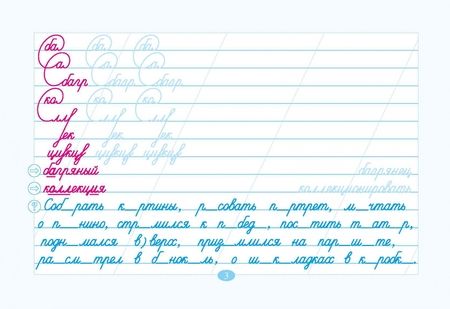 ба ба ба
а а а
багр багр багр
ко ко ко
лл лл лл
ек ек ек
багряный багрянец
коллекция коллекционировать
Соб_рать к_ртины, р_совать п_ртрет, м_чтать
о п_нино, стр_мился к п_бед_, пос_тить т_ат_р,
подн_мался в)верх, приз_млился на пар_ш_те,
ра_см_трел в б_нок_ль, о ш_к_ладках в к_робк_.
3